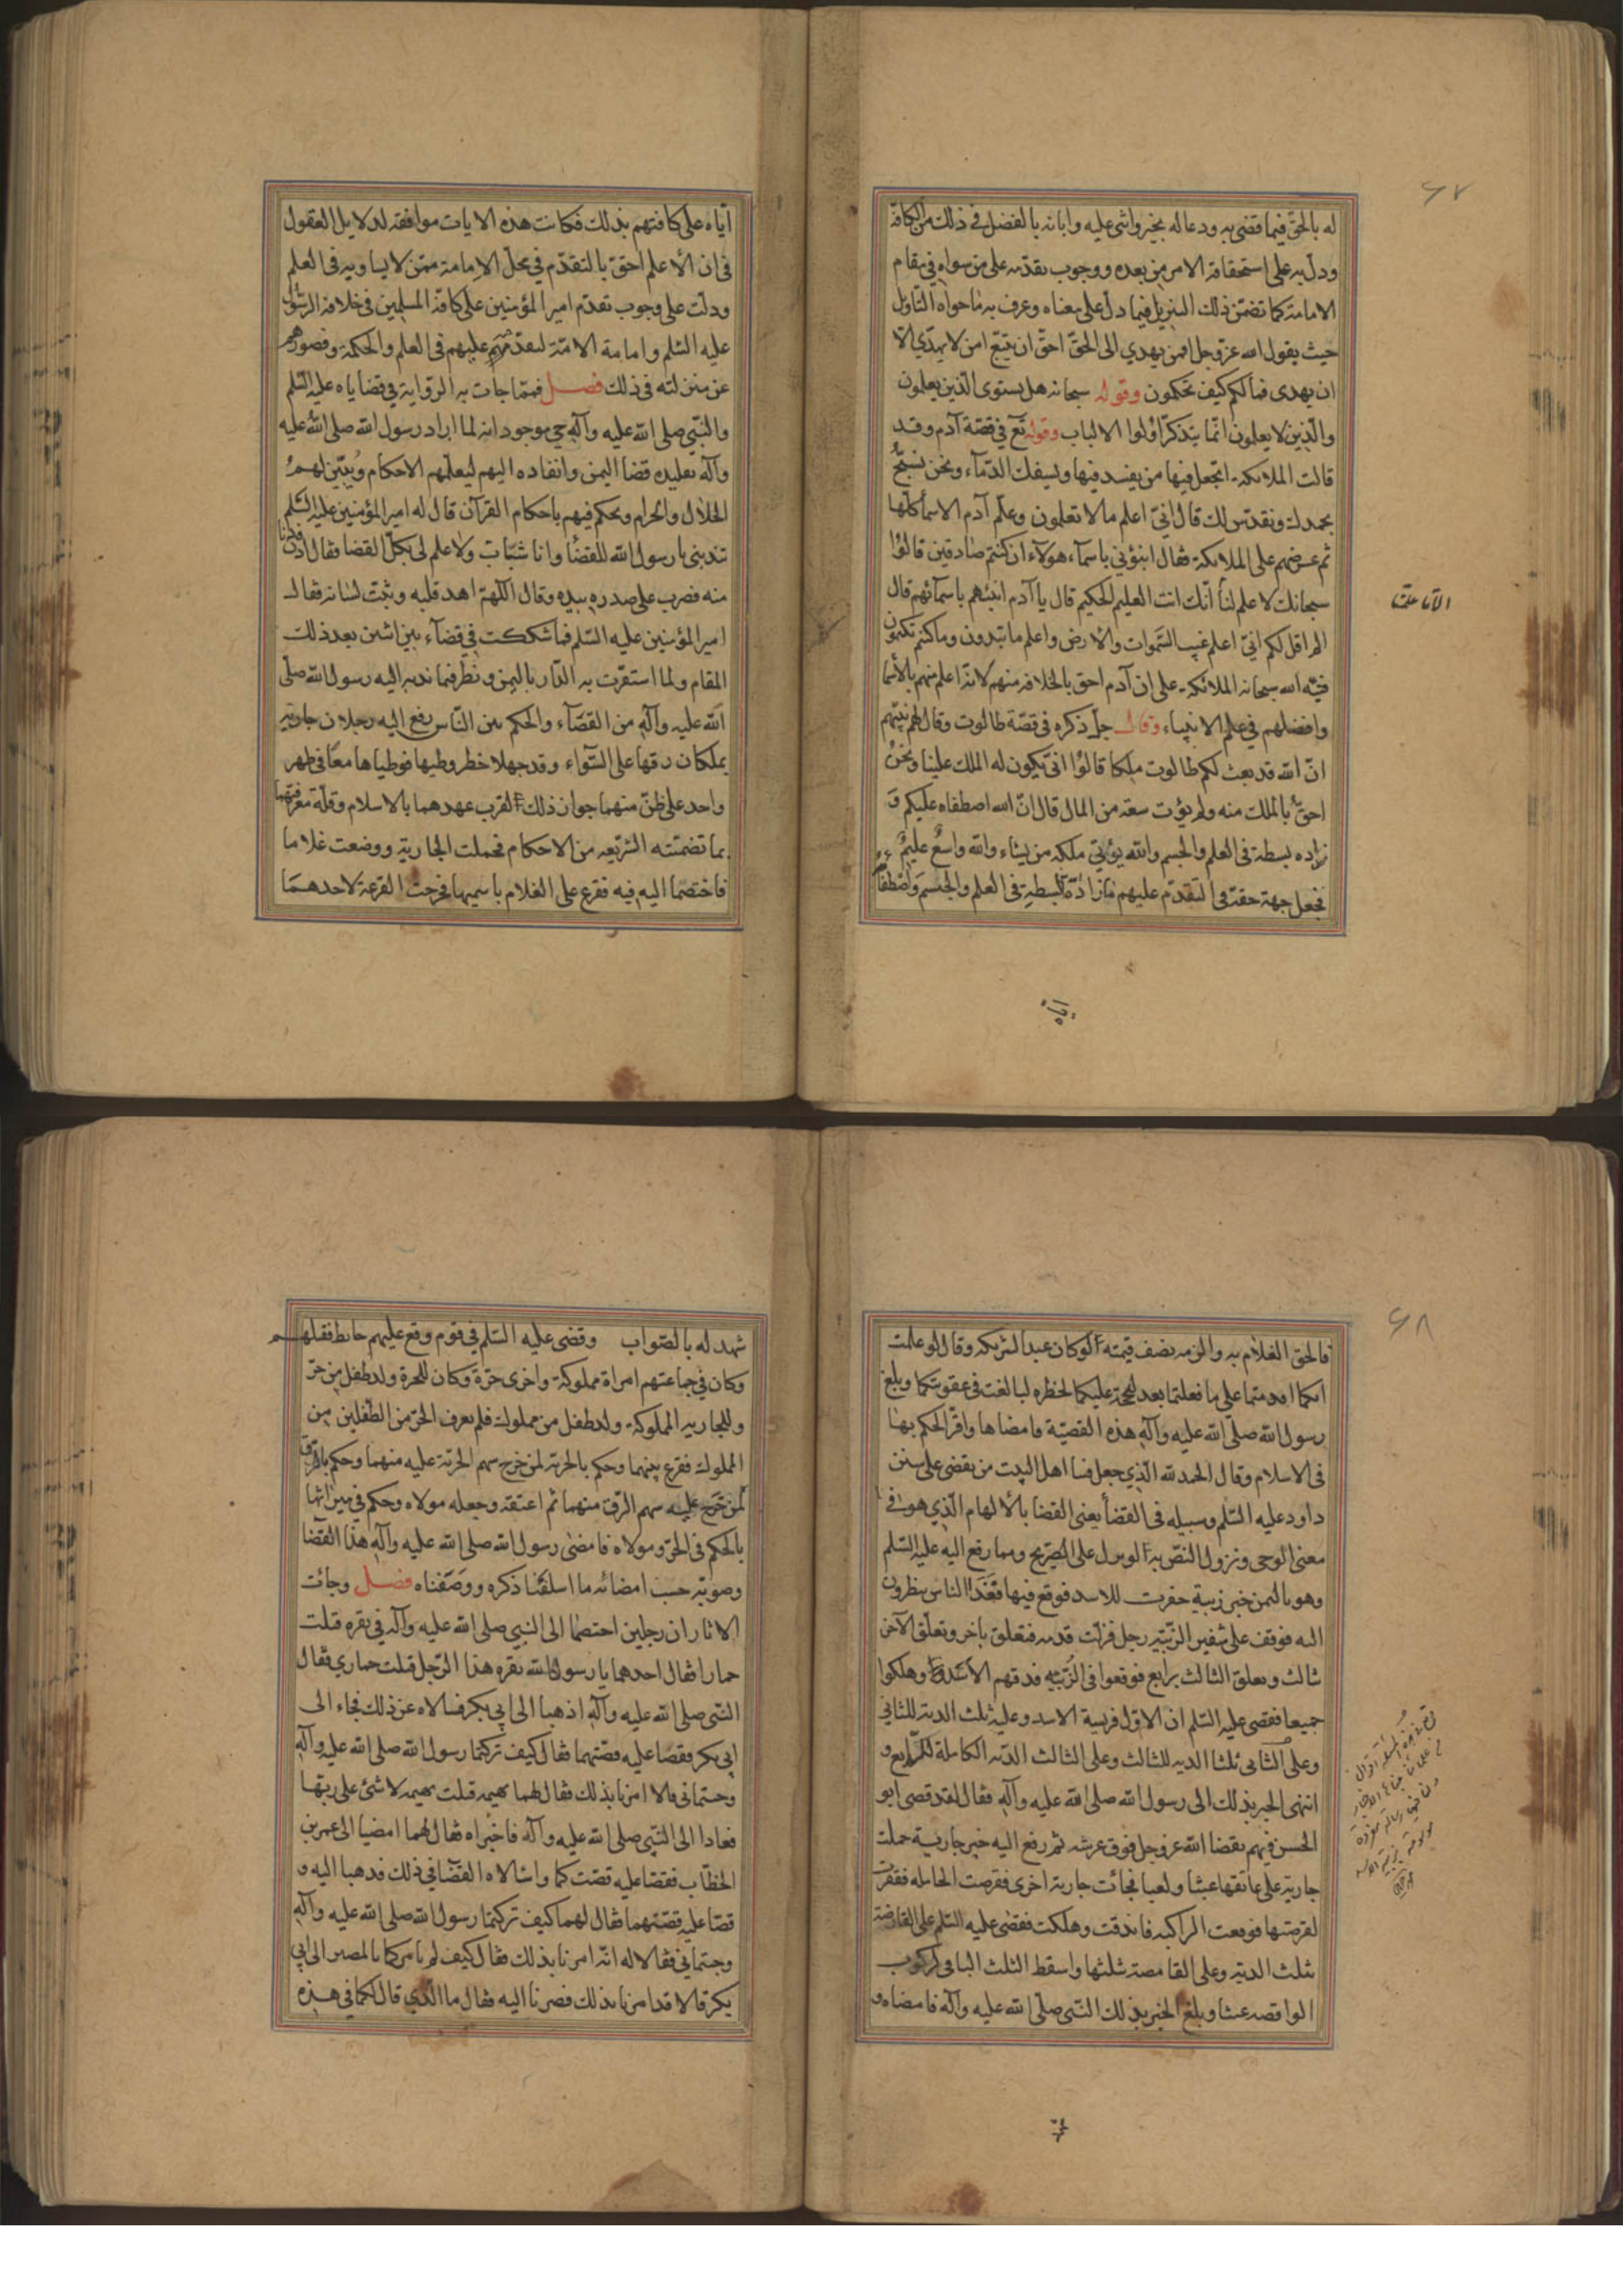 ٦٧
له بالحق فيما قضى به ودعا له بخير واثنى عليه وابانه بالفضل في ذلك من الكافة
ودل به على استحقاقه الامر من بعده ووجوب تقدمه على من سواه في مقام
الامامة كما تضمن ذلك التنزيل فيما دل على معناه وعرف به ما حواه التاويل
حيث يقول الله عز وجل افمن يهدي الى الحق احق ان يتبع امن لا يهدي الا
ان يهدى فما لكم كيف تحكمون وقوله سبحانه هل يستوى الذين يعلمون
والذين لا يعلمون انما يتذكر اولوا الالباب وقوله تع في قصة آدم وقد
قالت الملائكة اتجعل فيها من يفسد فيها ويسفك الدمآء ونحن نسبح
بحمدك ونقدس لك قال اني اعلم ما لا تعلمون وعلم آدم الاسمأ كلها
ثم عرضهم على الملائكة فقال انبؤني باسمآء هولآء ان كنتم صادقين قالوا
سبحانك لا علم لنا انك انت العليم الحكيم قال يا آدم انبئهم باسمآئهم قال
الا ما علمتنا
الم اقل لكم اني اعلم غيب السموات والارض واعلم ما تبدون وما كنتم تكتمون
فنبه الله سبحانه الملائكة على ان آدم احق بالخلافة منهم لانه اعلم منهم بالأسما
وافضلهم في علم الانبياء وقال جل ذكره في قصة طالوت وقال لهم نبيهم
ان الله قد بعث لكم طالوت ملكا قالوا انى يكون له الملك علينا ونحن
احق بالملك منه ولم يؤت سعة من المال قال ان الله اصطفاه عليكم و
زاده بسطة في العلم والجسم والله يؤتي ملكه من يشاء والله واسع عليم
فجعل جهة حقه في التقدم عليهم ما زاده البسطة في العلم والجسم واصطفاه
اياه
اياه على كافتهم بذلك فكانت هذه الايات موافقه لدلايل العقول
في ان الأعلم احق بالتقدم في محل الامامة ممن لا يساويه في العلم
ودلت على وجوب تقدم امير المؤمنين على كافة المسلمين في خلافة الرسول
عليه السلم وامامة الامة لتقدمه عليهم في العلم والحكمة وقصورهم
عن منزلته في ذلك فصل فمما جات به الرواية في قضاياه عليه السلم
والنبي صلى الله عليه وآله حي موجود انه لما اراد رسول الله صلى الله عليه
وآله تقليده قضا اليمن وانفاده اليهم ليعلمهم الاحكام ويبين لهم
الحلال والحرام ويحكم فيهم باحكام القرآن قال له امير المؤمنين عليه السلم
تندبنى يا رسول الله للقضأ وانا شاب ولا علم لى بكل القضا فقال ادن
منه فضرب على صدره بيده وقال اللهم اهد قلبه وثبت لسانه فقال
امير المؤمنين عليه السلم فما شككت في قضآء بين اثنين بعد ذلك
المقام ولما استقرت به الدار باليمن ونظر فيما ندبه اليه رسول الله صلى
الله عليه وآله من القضآء والحكم بين الناس رفع اليه رجلان جارية
يملكان رقها على السوآء وقد جهلا خطر وطيها فوطياها معا في طهر
واحد على ظن منهما جواز ذلك لقرب عهدهما بالاسلام وقلة معرفتهما
بما تضمنته الشريعه من الاحكام فحملت الجارية ووضعت غلاما
فاختصما اليه فيه فقرع على الغلام باسميهما فخرجت القرعة لاحدهما
٦٨
فالحق الغلام به والزمه نصف قيمته لو كان عبدا لشريكه وقال لو علمت
انكما اقدمتما على ما فعلتما بعد الحجة عليكما لحظره لبالغت في عقوبتكما وبلغ
رسول الله صلى الله عليه وآله هذه القضية فامضاها واقر الحكم بها
في الاسلام وقال الحمد لله الذي جعل فينا اهل البيت من يقضى على سنن
داود عليه السلم وسبيله في القضأ يعنى القضا بالالهام الذي هو في
معنى الوحى ونزول النص به لو نزل على الصريح ومما رفع اليه عليه السلم
وهو باليمن خبر زبية حفرت للاسد فوقع فيها فغدا الناس ينظرون
اليه فوقف على شفير الزبية رجل فزلت قدمه فتعلق باخر وتعلق الآخر
ثالث وتعلق الثالث برابع فوقعوا في الزبية فدقهم الأسد وهلكوا
جميعا فقضى عليه السلم ان الاول فريسة الاسد وعليه ثلث الدية للثاني
وعلى الثاني ثلثا الدية للثالث وعلى الثالث الدية الكاملة للرابع و
انتهى الخبر بذلك الى رسول الله صلى الله عليه وآله فقال لقد قضى ابو
الحسن فيهم بقضا الله عز وجل فوق عرشه ثم رفع اليه خبر جارية حملت
جارية على عاتقها عبثا ولعبا فجائت جارية اخرى فقرصت الحاملة فقفزت
لقرصتها فوقعت الراكبه فاندقت وهلكت فقضى عليه السلم على القارصة
بثلث الدية وعلى القامصة بثلثها واسقط الثلث الباقى لركوب
الواقصه عبثا وبلغ الخبر بذلك النبى صلى الله عليه وآله فامضاه و
شهد
شهد له بالصواب وقضى عليه السلم في قوم وقع عليهم حايط فقتلهم
وكان في جماعتهم امراة مملوكة واخرى حرة وكان للحرة ولد طفل من حر
وللجارية المملوكة ولد طفل من مملوك فلم يعرف الحر من الطفلين من
المملوك فقرع بينهما وحكم بالحرية لمن خرج سهم الحرية عليه منهما وحكم بالرق
لمن خرج عليه سهم الرق منهما ثم اعتقه وجعله مولاه وحكم في ميراثهما
بالحكم في الحر ومولاه فامضى رسول الله صلى الله عليه وآله هذا القضا
وصوبه حسب امضائه ما اسلفنا ذكره ووصفناه فصل وجائت
الاثار ان رجلين اختصما الى النبي صلى الله عليه وآله في بقره قتلت
حمارا فقال احدهما يا رسول الله بقره هذا الرجل قتلت حماري فقال
النبى صلى الله عليه وآله اذهبا الى ابي بكر فسالاه عن ذلك فجاء الى
ابي بكر فقصا عليه قصتهما فقال كيف تركتما رسول الله صلى الله عليه وآله
وجئتمانى قالا امرنا بذلك فقال لهما بهيمه قتلت بهيمه لا شئ على ربها
فعادا الى النبي صلى الله عليه وآله فاخبراه فقال لهما امضيا الى عمر بن
الخطاب فقصا عليه قصتكما واسالاه القضا في ذلك فذهبا اليه و
قصا عليه قصتهما فقال لهما كيف تركتما رسول الله صلى الله عليه وآله
وجئتماني فقالا له انه امرنا بذلك فقال كيف لم يامركما بالمصير الى ابي
بكر قالا قد امرنا بذلك فصرنا اليه فقال ما الذي قال لكما في هذه